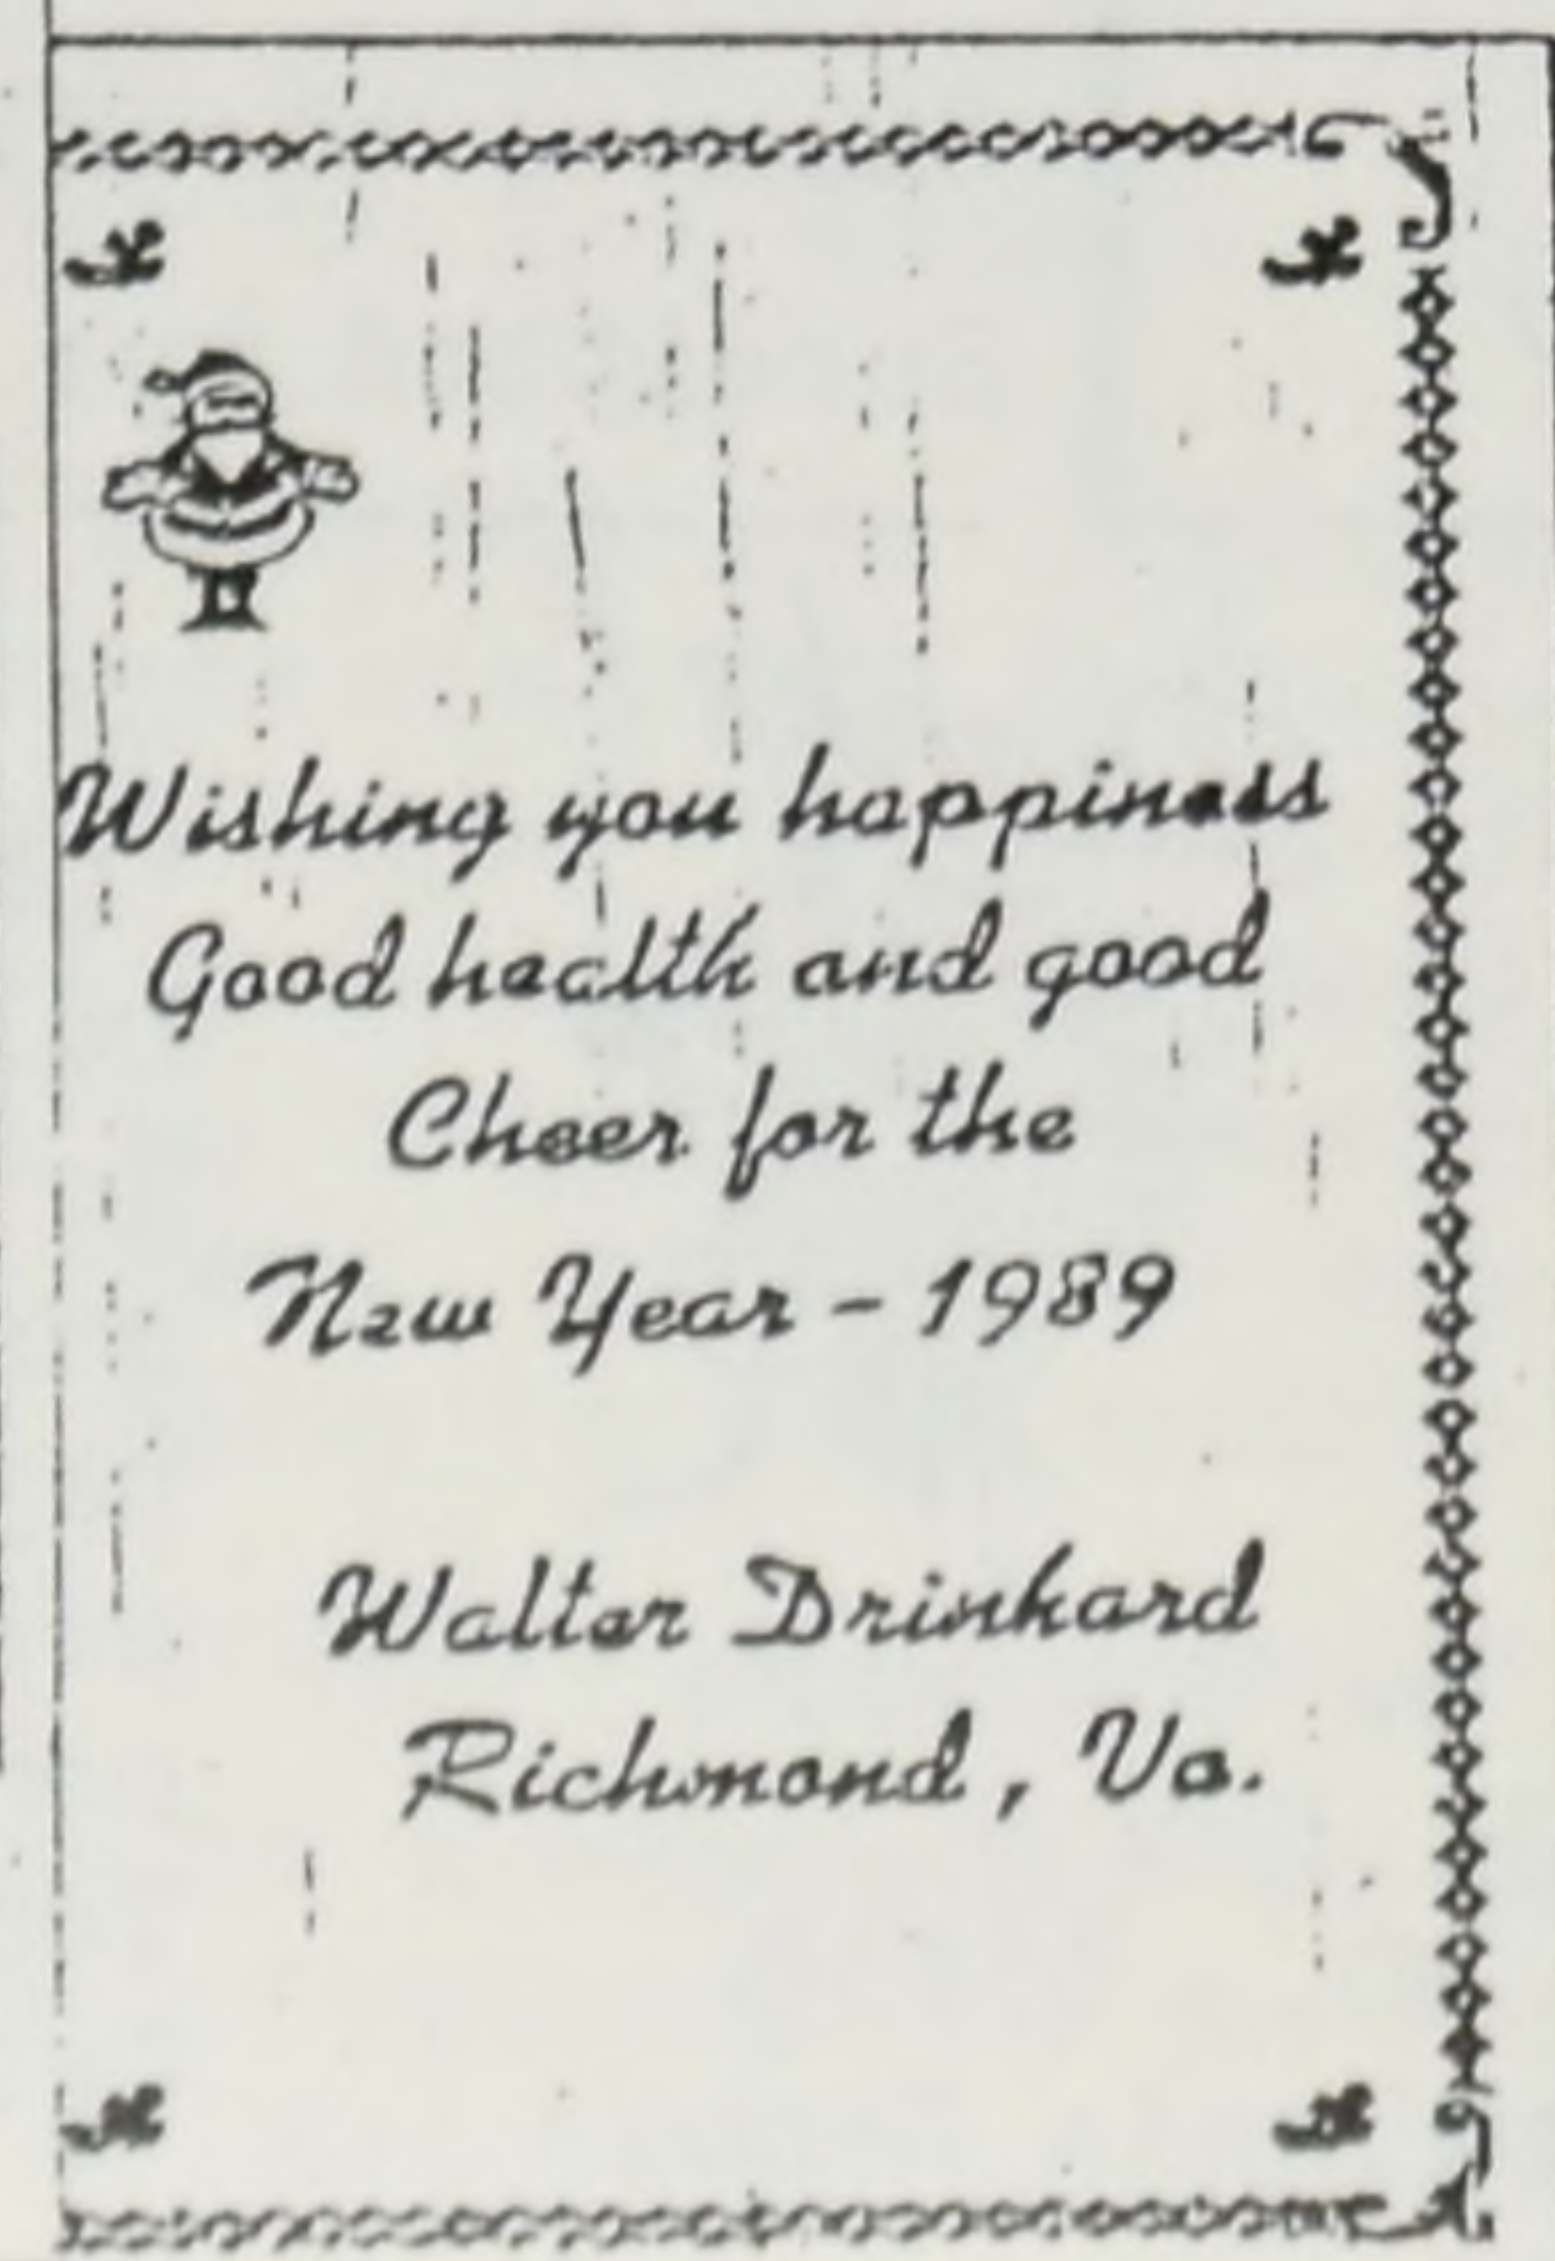 Wishing you happiness
Good health and good
Cheer for the
New Year - 1989
Walter Drinkard
Richmond, Va.